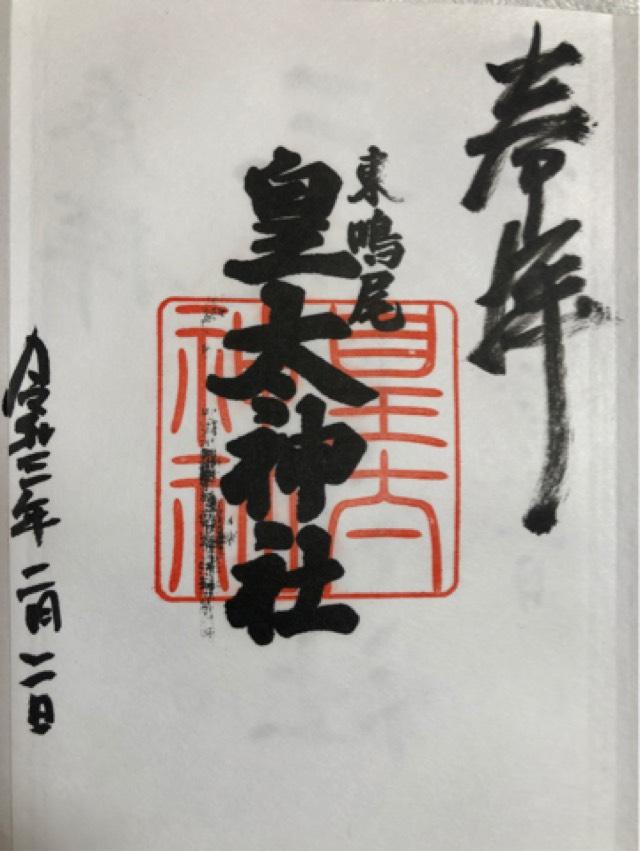 奉拝
東鳴尾
皇太神社
皇太神社
令和三年二月二日